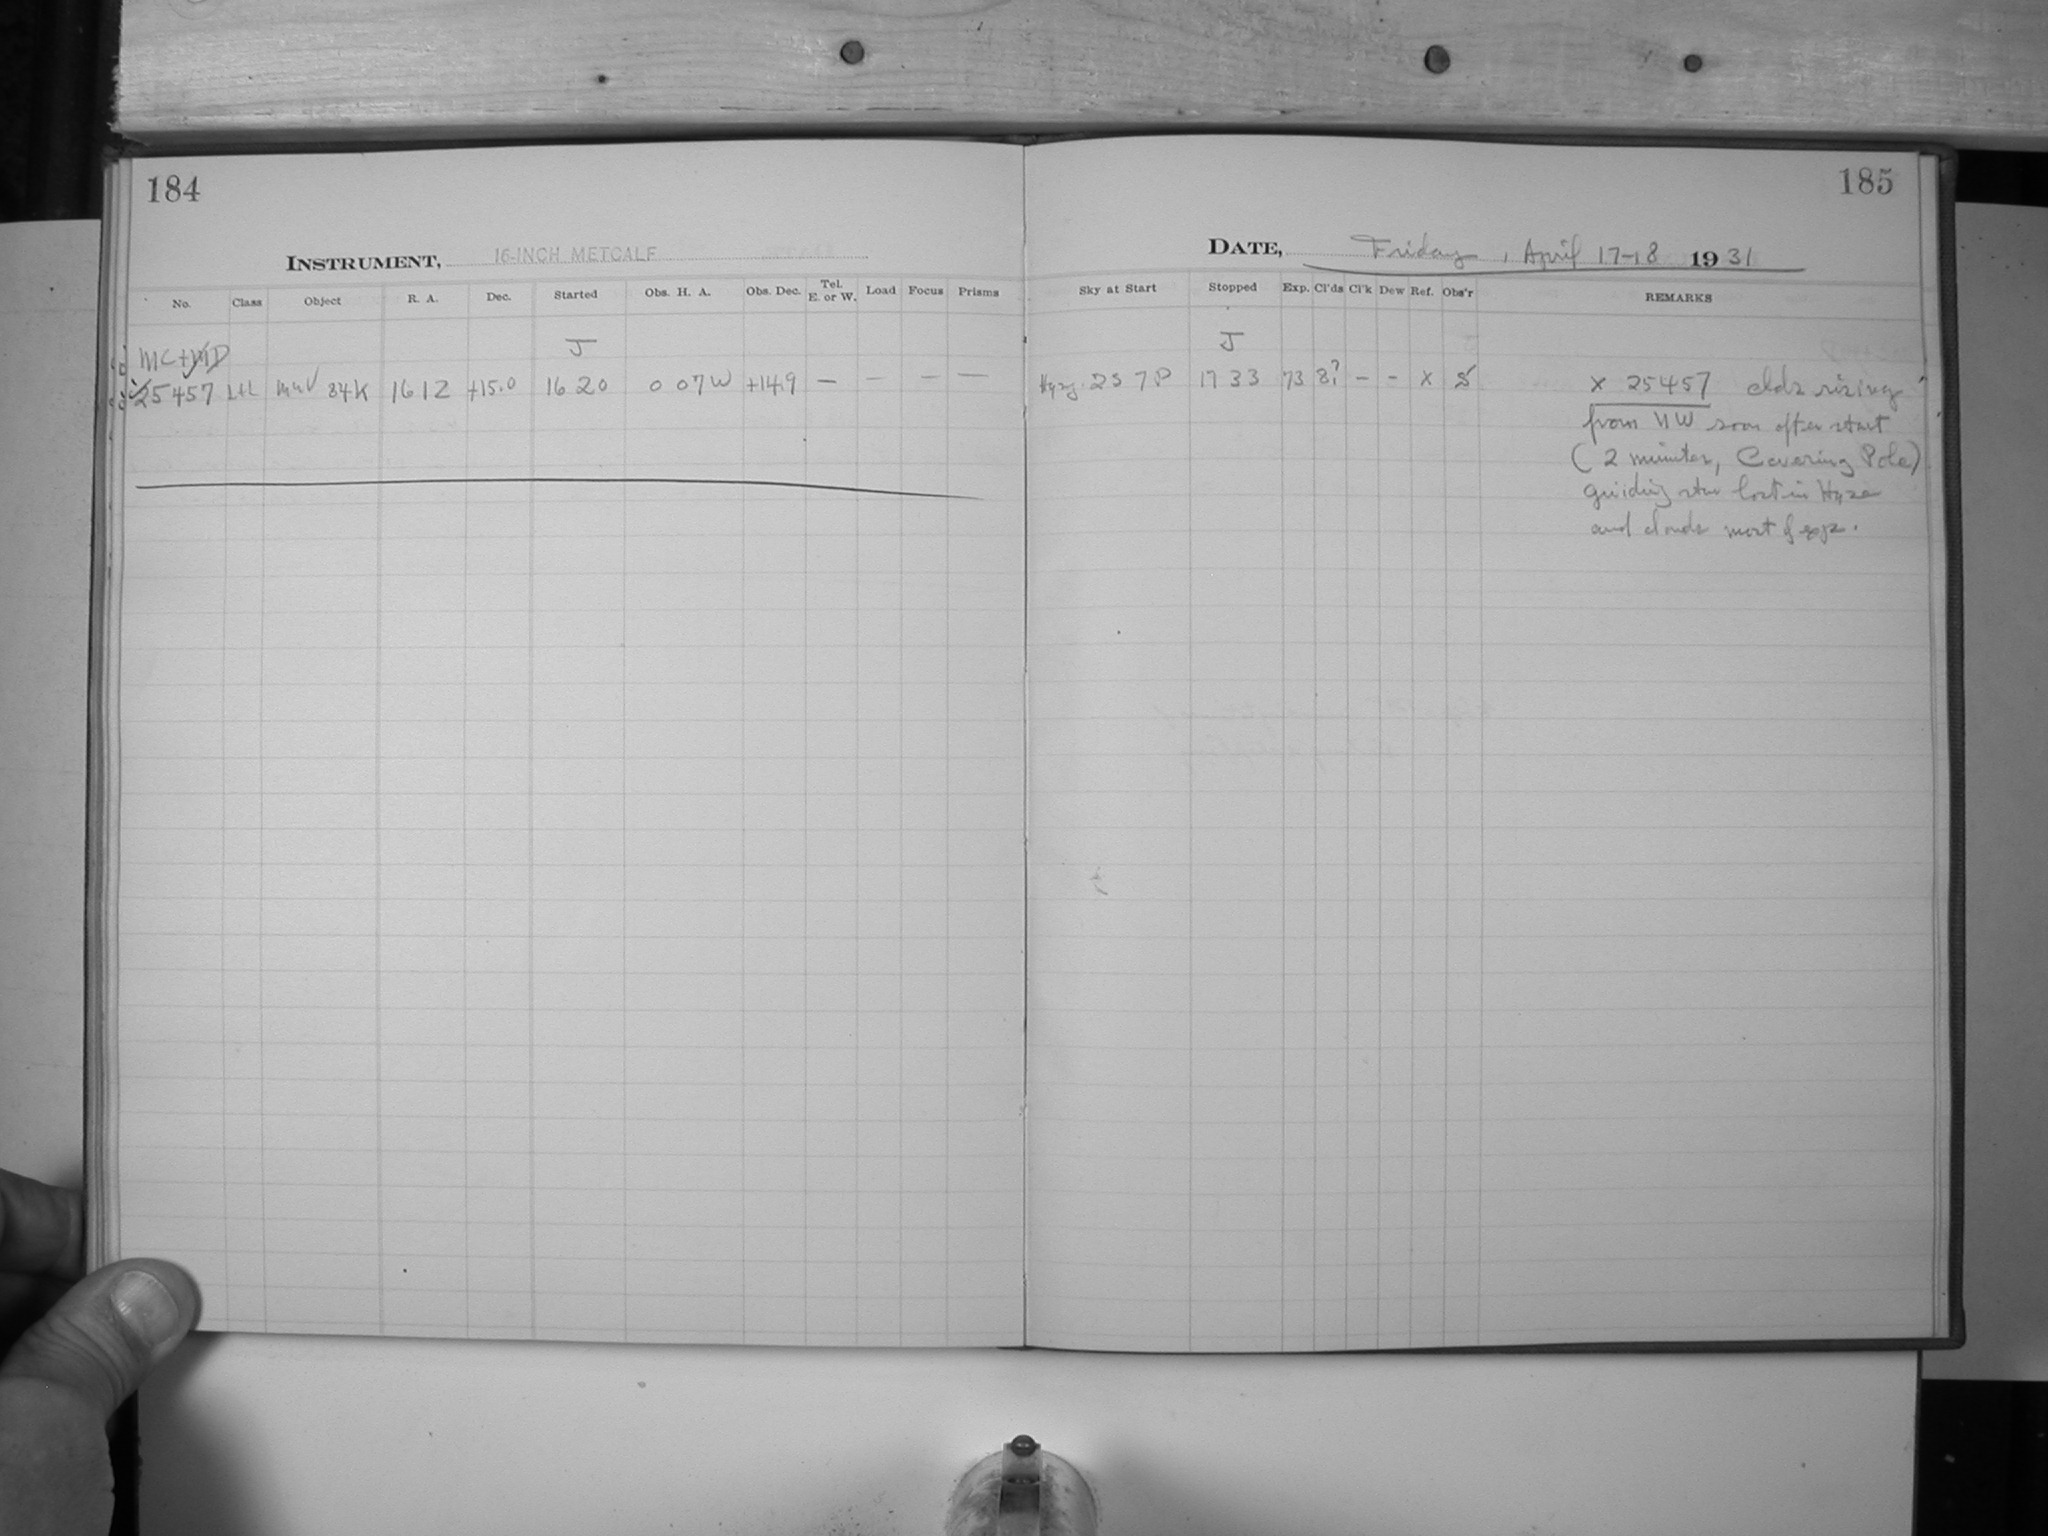 184
INSTRUMENT, 16-INCH METCALF
No. Class Object R. A. Dec. Started Obs. H. A. Obs. Dec. Tel. E. or W. Load Focus Prisms
J
MC+MD
25457 L+L 84K 16 12 +15.0 16 20 0 07W +14.9 — — — —
185
DATE, Friday, April 17-18 1931
Sky at Start Stopped Exp. Cl'ds Cl'k Dew Ref. Obs'r REMARKS
J
Hazy. 2 S 7 P 17 33 73 8? - - x S x 25457 clds rising
from NW soon after start
(2 minutes, Covering Pole)
guiding star lost in Haze
and clouds most of exp.